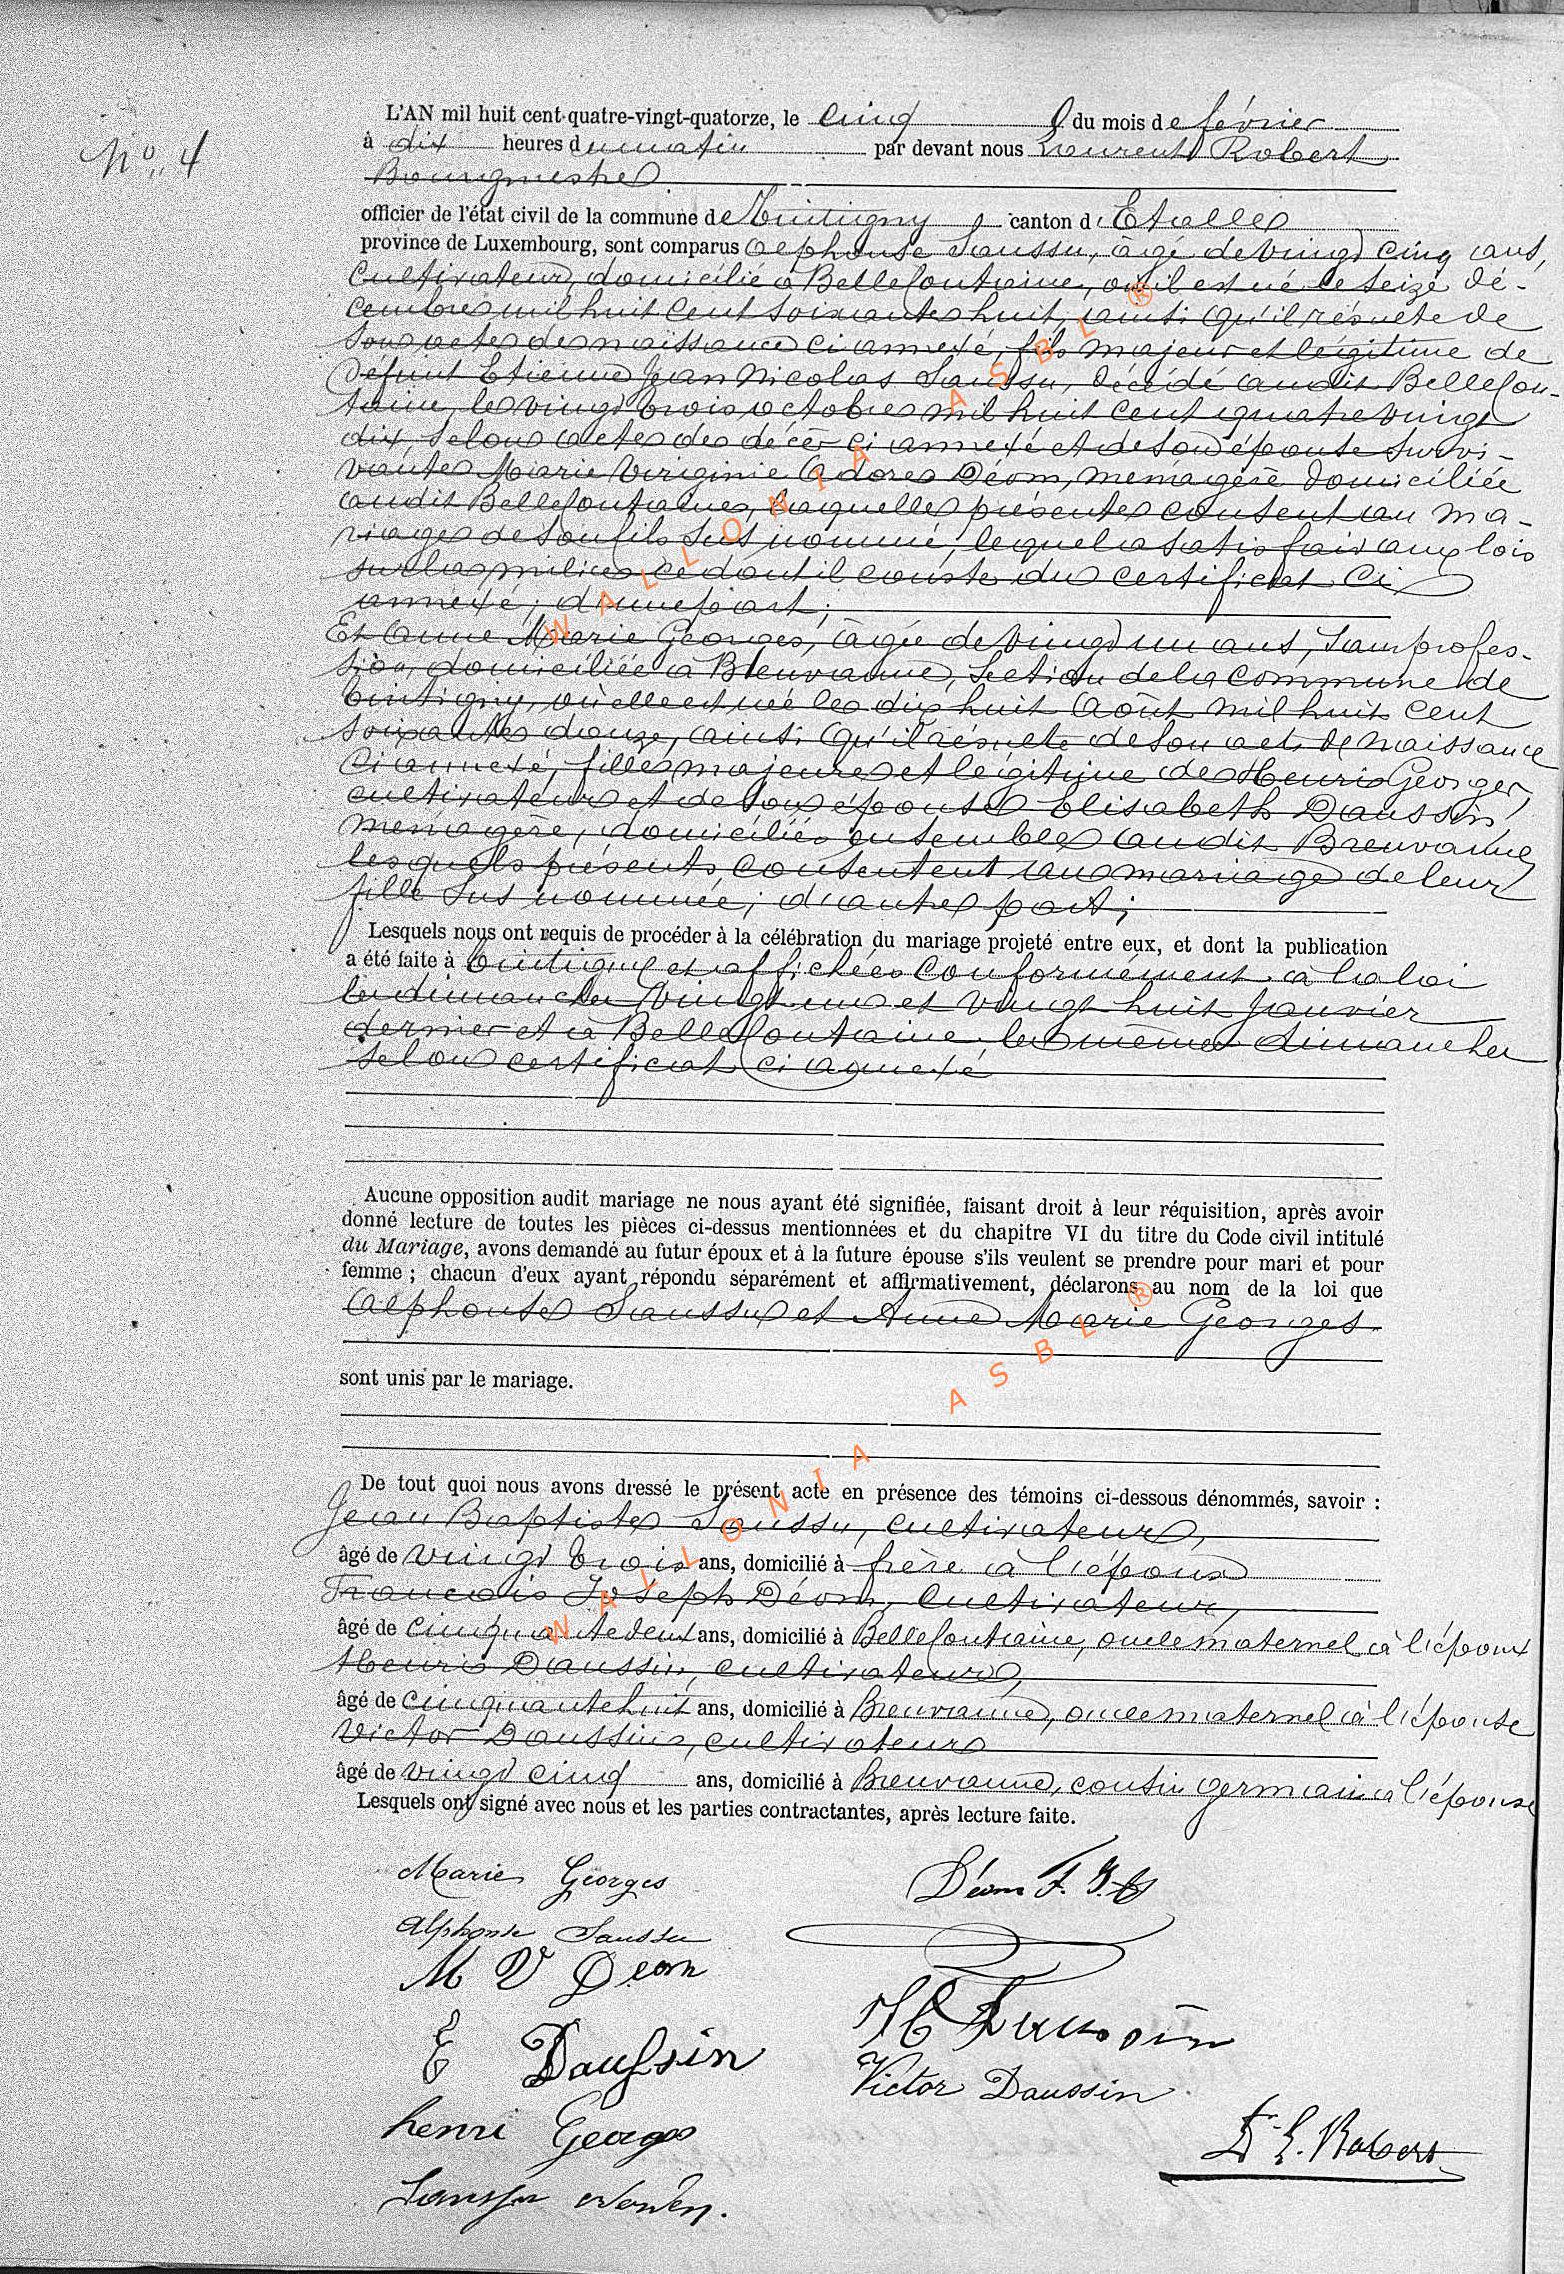 N° 4
L'AN mil huit cent quatre-vingt-quatorze, le cinq du mois de février
à dix heures du matin par devant nous Laurent Robert
Bourgmestre
officier de l'état civil de la commune de Tintigny canton d'Etalle
province de Luxembourg, sont comparus Alphonse Saussu, âgé de vingt cinq ans,
cultivateur, domicilié à Bellefontaine, où il est né le seize dé-
cembre mil huit cent soixante huit, ainsi qu'il résulte de
son acte de naissance ci annexé, fils majeur et légitime de
défunt Etienne Jean Nicolas Saussu, décédé audit Bellefon-
taine, le vingt trois octobre mil huit cent quatre vingt
dix, selon acte de décès ci annexé et de son épouse survi-
vante Marie Virginie Déom, ménagère domiciliée
audit Bellefontaine, laquelle présente consent au ma-
riage de son fils sus nommé, lequel a satisfait aux lois
sur la milice ce dont il conste du certificat ci
annexé; d'une part;
Et Anne Marie Georges, âgée de vingt un ans, sans profes-
sion, domiciliée à Breuvanne, section de la commune de
Tintigny, où elle est née le dix huit Août mil huit cent
soixante douze, ainsi qu'il résulte de son acte de naissance
ci annexé, fille majeure et légitime de Henri Georges,
cultivateur et de son épouse Elisabeth Daussin
ménagère, domiciliés ensemble audit Breuvanne,
lesquels présents consentent au mariage de leur
fille sus nommée; d'autre part;
Lesquels nous ont requis de procéder à la célébration du mariage projeté entre eux, et dont la publication
a été faite à Tintigny et affichée conformément à la loi
les dimanches vingt un et vingt huit Janvier
dernier et à Bellefontaine les mêmes dimanches
selon certificat ci annexé
Aucune opposition audit mariage ne nous ayant été signifiée, faisant droit à leur réquisition, après avoir
donné lecture de toutes les pièces ci-dessus mentionnées et du chapitre VI du titre du Code civil intitulé
du Mariage, avons demandé au futur époux et à la future épouse s'ils veulent se prendre pour mari et pour
femme ; chacun d'eux ayant répondu séparément et affirmativement, déclarons au nom de la loi que
Alphonse Saussu et Anne Marie Georges
sont unis par le mariage.
De tout quoi nous avons dressé le présent acte en présence des témoins ci-dessous dénommés, savoir :
Jean Baptiste Saussu, cultivateur,
âgé de vingt trois ans, domicilié à frère à l'époux
François Joseph Déom, cultivateur,
âgé de cinquante deux ans, domicilié à Bellefontaine, oncle maternel à l'époux
Henri Daussin, cultivateur,
âgé de cinquante huit ans, domicilié à Breuvanne, oncle maternel à l'épouse
Victor Daussin, cultivateur
âgé de vingt cinq ans, domicilié à Breuvanne, cousin germain à l'épouse
Lesquels ont signé avec nous et les parties contractantes, après lecture faite.
Marie Georges
Déom F. J.
Alphonse Saussu
M V Déom
H Daussin
E Daussin
Victor Daussin
henri Georges
L. Robert
Saussu
WALLONIA ASBL ®
WALLONIA ASBL ®